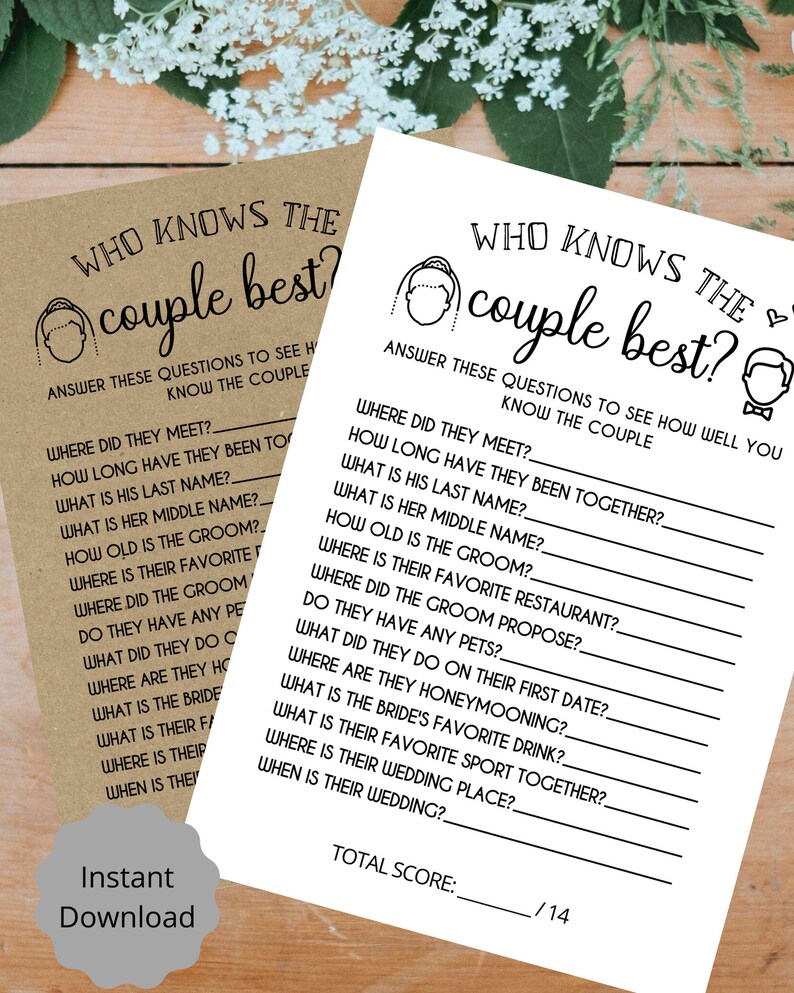 WHO KNOWS THE
couple best?
ANSWER THESE QUESTIONS TO SEE HO
KNOW THE COUPLE
WHERE DID THEY MEET?
HOW LONG HAVE THEY BEEN TOG
WHAT IS HIS LAST NAME?
WHAT IS HER MIDDLE NAME?
HOW OLD IS THE GROOM?
WHERE IS THEIR FAVORITE
WHERE DID THE GROOM
DO THEY HAVE ANY PET
WHAT DID THEY DO ON
WHERE ARE THEY HO
WHAT IS THE BRIDE'S
WHAT IS THEIR FA
WHERE IS THEIR
WHEN IS THEIR
WHO KNOWS THE
couple best?
ANSWER THESE QUESTIONS TO SEE HOW WELL YOU
KNOW THE COUPLE
WHERE DID THEY MEET?
HOW LONG HAVE THEY BEEN TOGETHER?
WHAT IS HIS LAST NAME?
WHAT IS HER MIDDLE NAME?
HOW OLD IS THE GROOM?
WHERE IS THEIR FAVORITE RESTAURANT?
WHERE DID THE GROOM PROPOSE?
DO THEY HAVE ANY PETS?
WHAT DID THEY DO ON THEIR FIRST DATE?
WHERE ARE THEY HONEYMOONING?
WHAT IS THE BRIDE'S FAVORITE DRINK?
WHAT IS THEIR FAVORITE SPORT TOGETHER?
WHERE IS THEIR WEDDING PLACE?
WHEN IS THEIR WEDDING?
TOTAL SCORE: / 14
Instant
Download